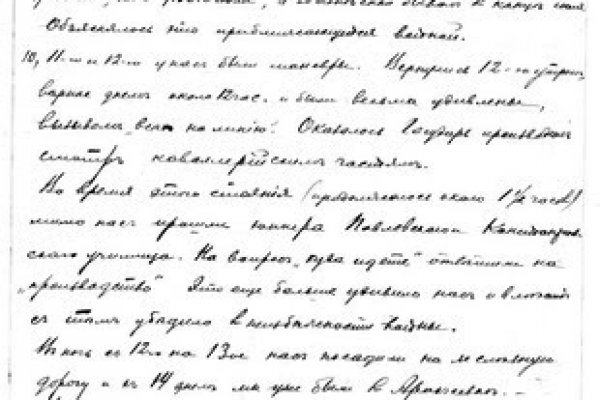 Объяснялось это приближающейся войной.
10, 11-го и 12-го у нас были маневры. Вернулись 12-го утром,
вернее днем около 12 час. и были весьма удивлены,
вызывом „всех на линию“. Оказалось Государь производил
смотр кавалерийским частям.
Во время этого стояния (продолжалось около 1½ часов)
мимо нас прошли юнкера Павловского
училища. На вопрос „куда идете“ ответили на
„производство“ Это еще больше удивило нас и
с тем убедило в неизбежности войны.
В ночь с 12го на 13ое нас посадили на железную
дорогу и 14 днем мы уже были в